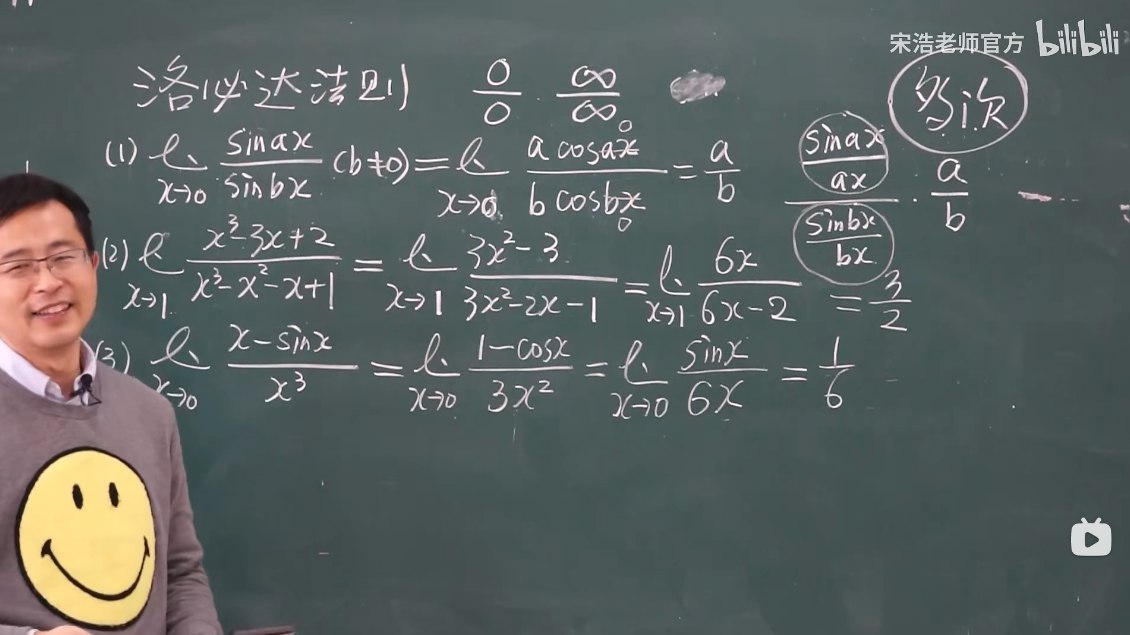 宋浩老师官方 bilibili
洛必达法则 0/0 . ∞/∞ 多次
(1) lim x→0 sinax/sinbx (b≠0) = lim x→0 a cosax/b cosbx = a/b (sinax/ax)/(sinbx/bx) · a/b
(2) lim x→1 x³-3x+2/x³-x²-x+1 = lim x→1 3x²-3/3x²-2x-1 = lim x→1 6x/6x-2 = 3/2
(3) lim x→0 x-sinx/x³ = lim x→0 1-cosx/3x² = lim x→0 sinx/6x = 1/6